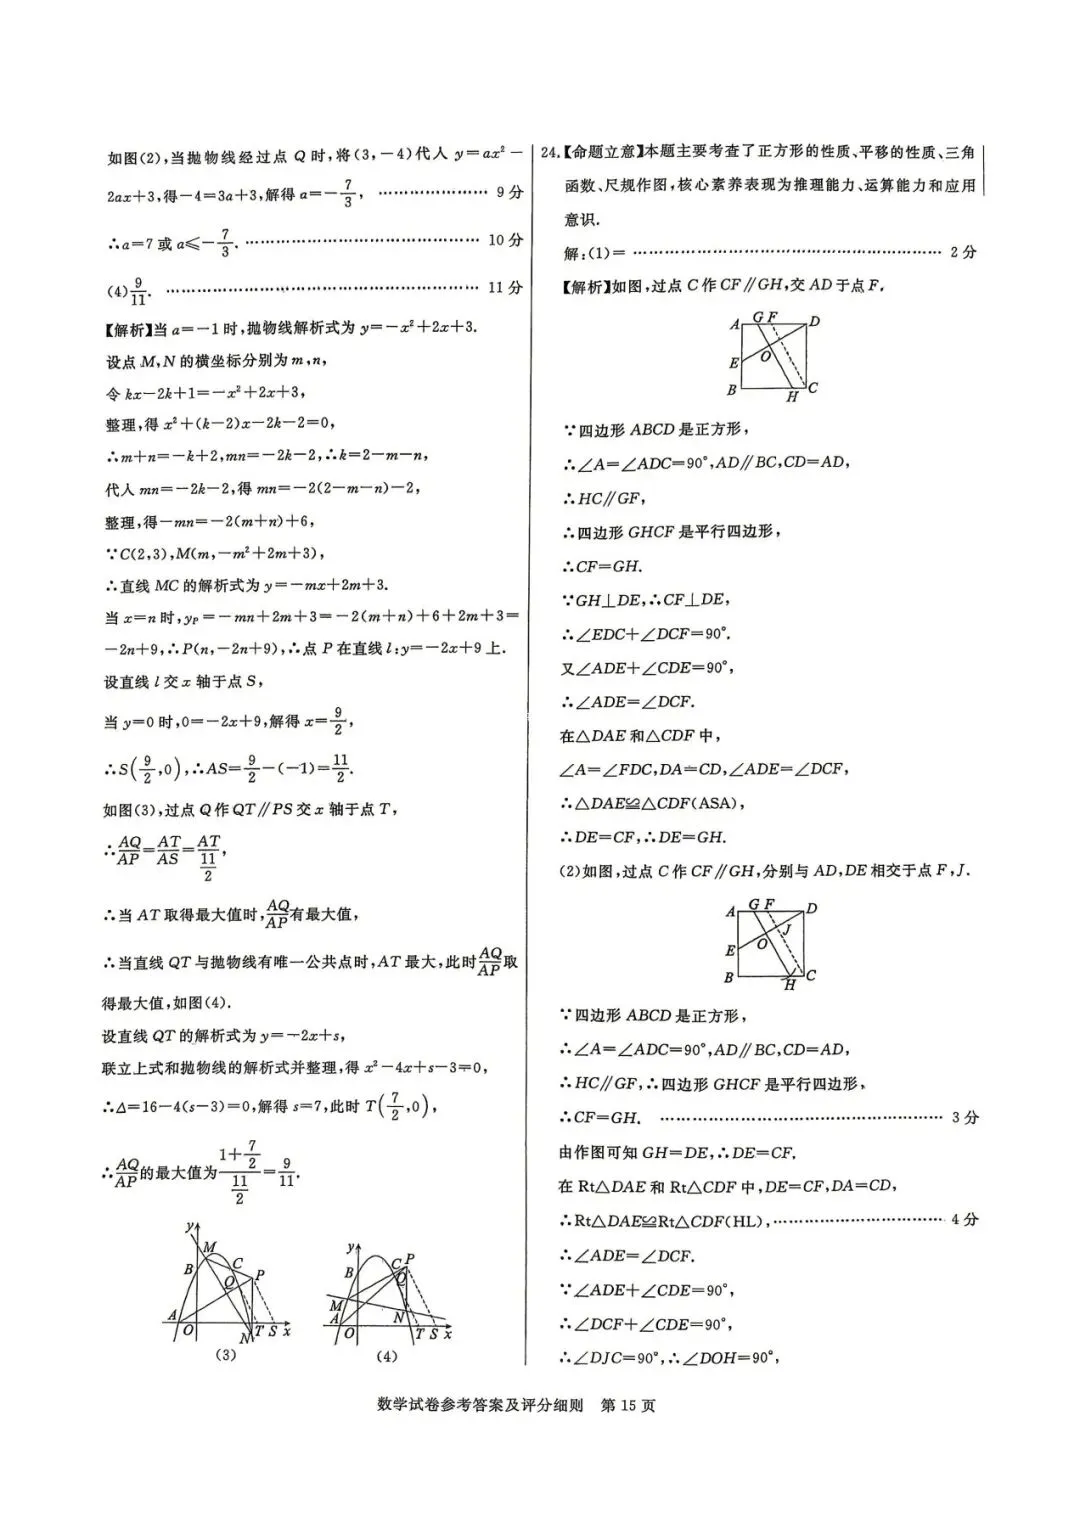 如图(2),当抛物线经过点 Q 时,将(3,-4)代入 y=ax²-
2ax+3,得-4=3a+3,解得 a=-7/3, …………………… 9 分
∴a=7 或 a≤-7/3. …………………………………… 10 分
(4)9/11. …………………………………………… 11 分
【解析】当 a=-1 时,抛物线解析式为 y=-x²+2x+3.
设点 M,N 的横坐标分别为 m,n,
令 kx-2k+1=-x²+2x+3,
整理,得 x²+(k-2)x-2k-2=0,
∴m+n=-k+2,mn=-2k-2,∴k=2-m-n,
代入 mn=-2k-2,得 mn=-2(2-m-n)-2,
整理,得-mn=-2(m+n)+6,
∵C(2,3),M(m,-m²+2m+3),
∴直线 MC 的解析式为 y=-mx+2m+3.
当 x=n 时,yP=-mn+2m+3=-2(m+n)+6+2m+3=
-2n+9,∴P(n,-2n+9),∴点 P 在直线 l:y=-2x+9 上.
设直线 l 交 x 轴于点 S,
当 y=0 时,0=-2x+9,解得 x=9/2,
∴S(9/2,0),∴AS=9/2-(-1)=11/2.
如图(3),过点 Q 作 QT∥PS 交 x 轴于点 T,
∴AQ/AP=AT/AS=AT/(11/2),
∴当 AT 取得最大值时,AQ/AP有最大值,
∴当直线 QT 与抛物线有唯一公共点时,AT 最大,此时AQ/AP取
得最大值,如图(4).
设直线 QT 的解析式为 y=-2x+s,
联立上式和抛物线的解析式并整理,得 x²-4x+s-3=0,
∴Δ=16-4(s-3)=0,解得 s=7,此时 T(7/2,0),
∴AQ/AP的最大值为(1+7/2)/(11/2)=9/11.
y
M
B
C
P
Q
A
O
N
T S x
(3)
y
B
C P
Q
M
A
N
O
T S x
(4)
24.【命题立意】本题主要考查了正方形的性质、平移的性质、三角
函数、尺规作图,核心素养表现为推理能力、运算能力和应用
意识.
解:(1)= …………………………………………… 2 分
【解析】如图,过点 C 作 CF∥GH,交 AD 于点 F.
A G F D
E O
B H C
∵四边形 ABCD 是正方形,
∴∠A=∠ADC=90°,AD∥BC,CD=AD,
∴HC∥GF,
∴四边形 GHCF 是平行四边形,
∴CF=GH.
∵GH⊥DE,∴CF⊥DE,
∴∠EDC+∠DCF=90°.
又∠ADE+∠CDE=90°,
∴∠ADE=∠DCF.
在△DAE 和△CDF 中,
∠A=∠FDC,DA=CD,∠ADE=∠DCF,
∴△DAE≌△CDF(ASA),
∴DE=CF,∴DE=GH.
(2)如图,过点 C 作 CF∥GH,分别与 AD,DE 相交于点 F,J.
A G F D
J
E O
B H C
∵四边形 ABCD 是正方形,
∴∠A=∠ADC=90°,AD∥BC,CD=AD,
∴HC∥GF,∴四边形 GHCF 是平行四边形,
∴CF=GH. ………………………………………… 3 分
由作图可知 GH=DE,∴DE=CF.
在 Rt△DAE 和 Rt△CDF 中,DE=CF,DA=CD,
∴Rt△DAE≌Rt△CDF(HL), ………………………… 4 分
∴∠ADE=∠DCF.
∵∠ADE+∠CDE=90°,
∴∠DCF+∠CDE=90°,
∴∠DJC=90°,∴∠DOH=90°,
数学试卷参考答案及评分细则 第 15 页